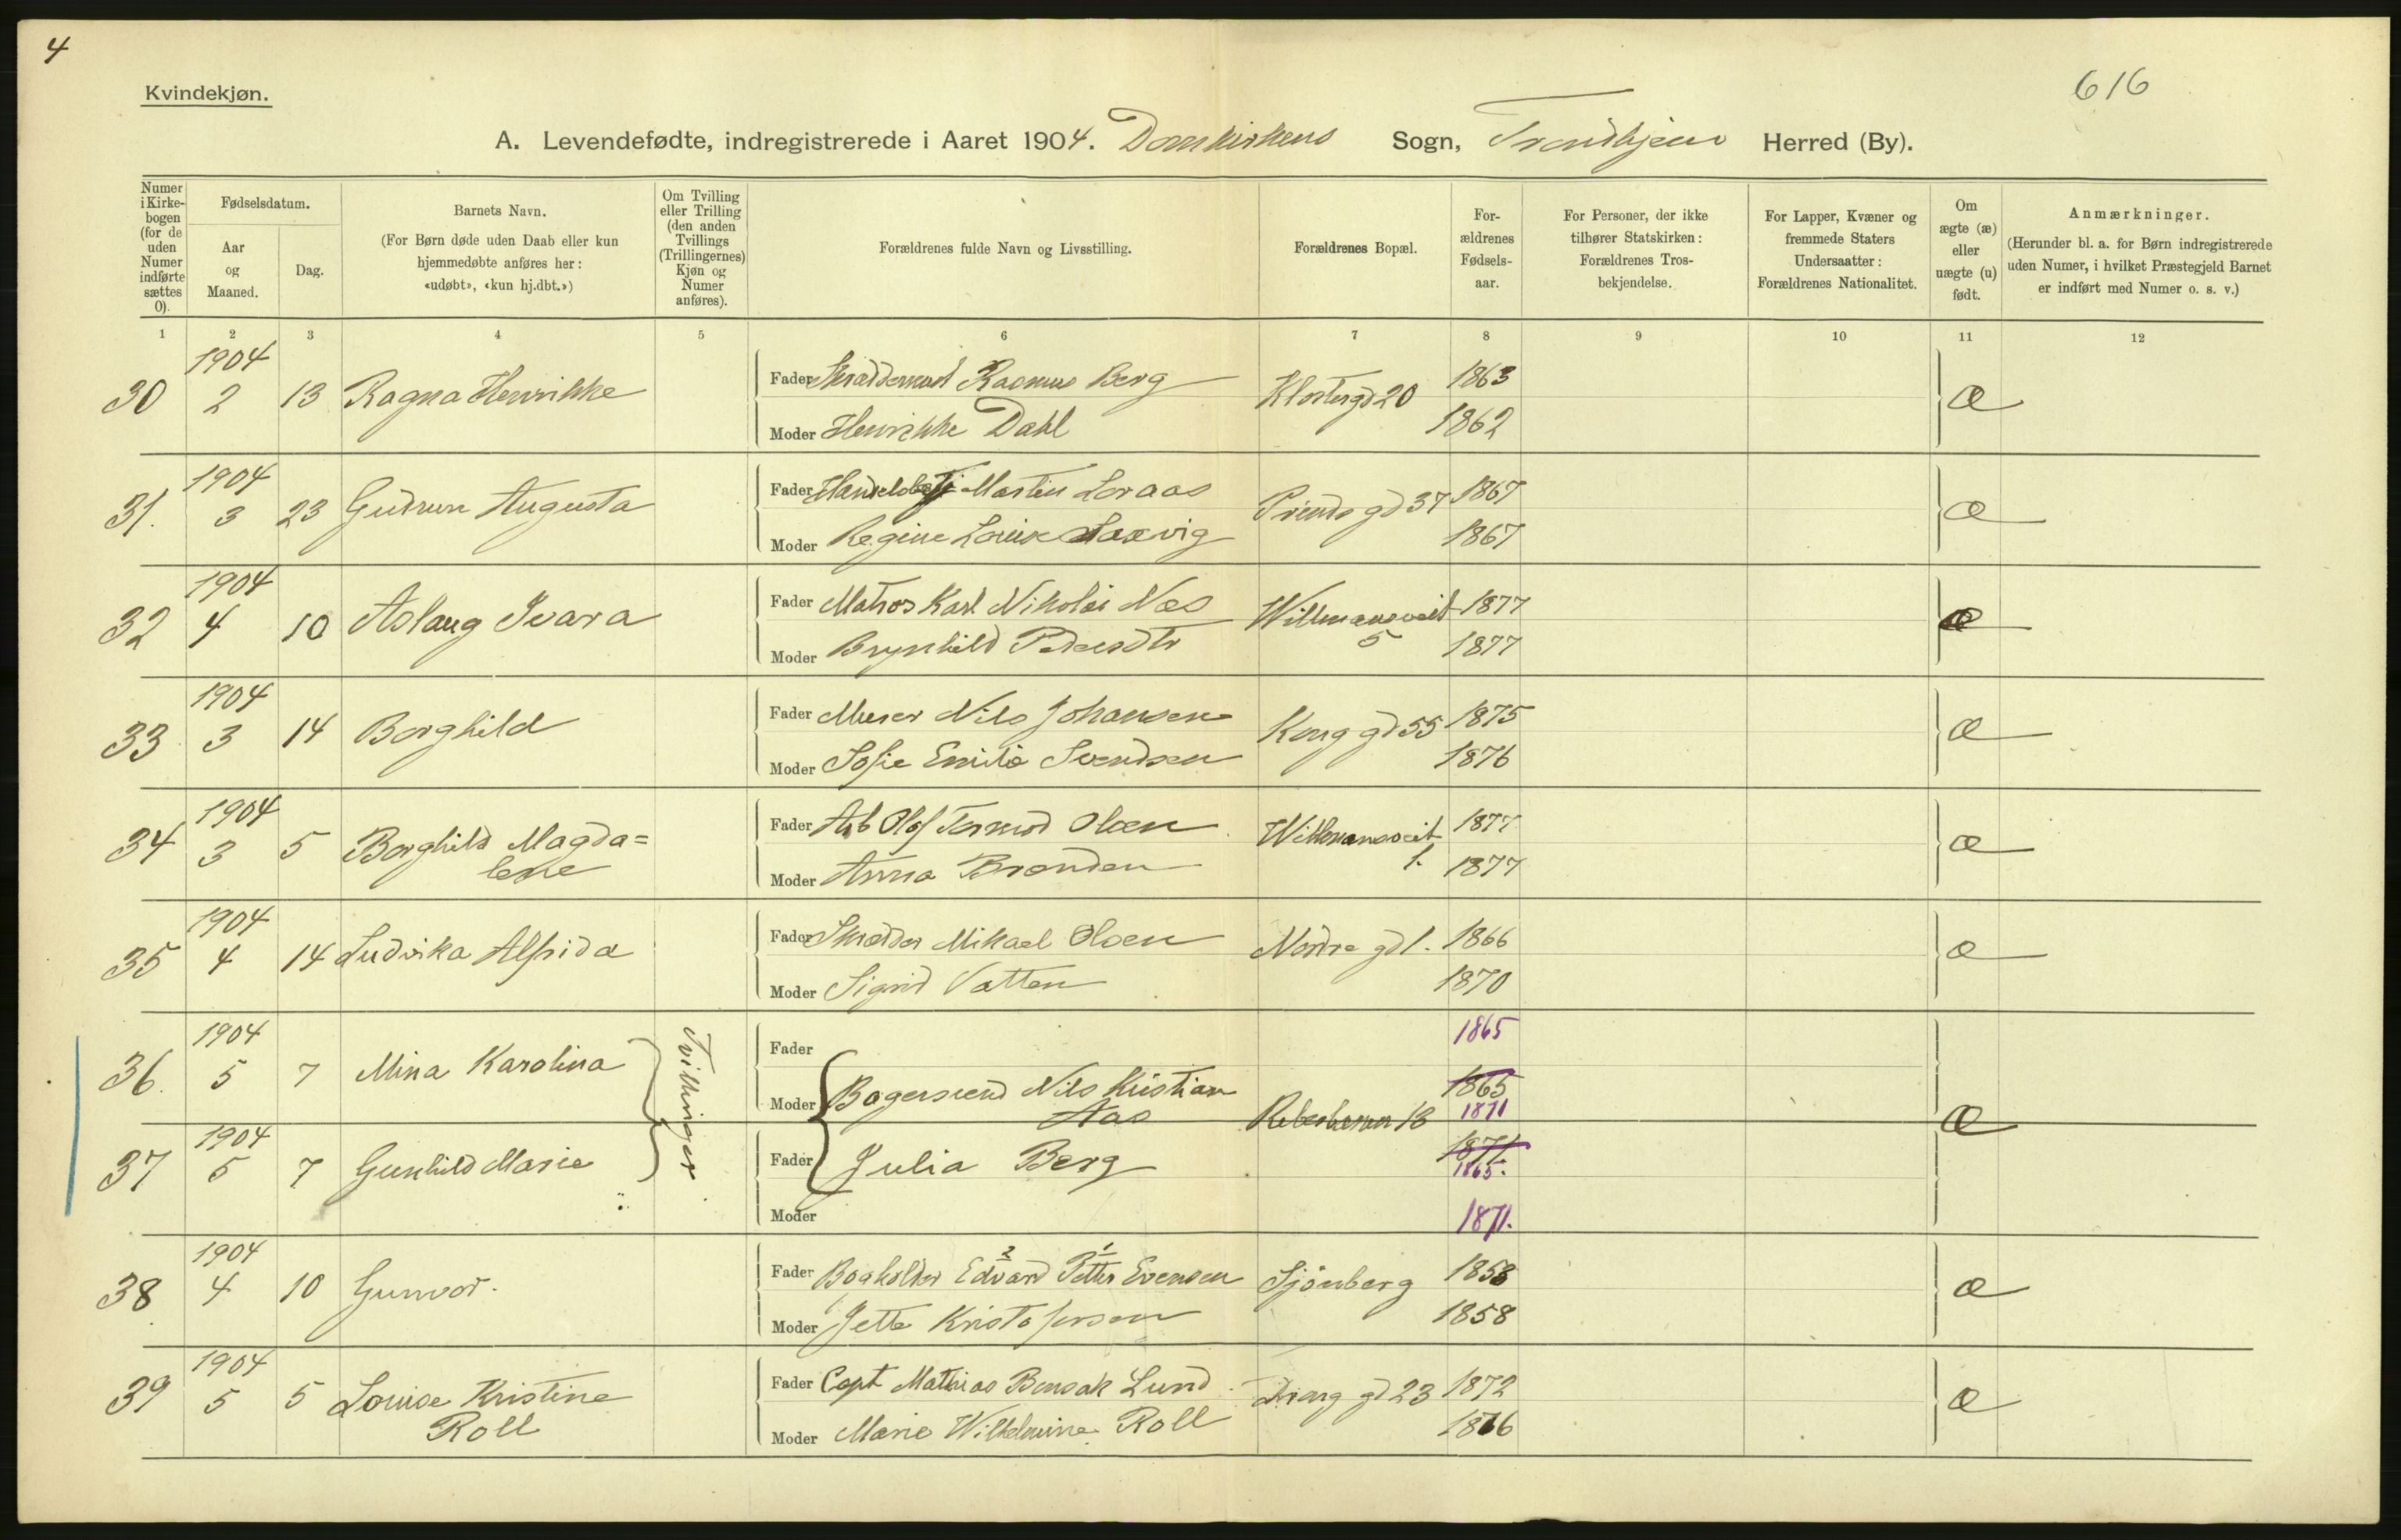 4
616
Kvindekjøn.
A. Levendefødte, indregistrerede i Aaret 1904. Domkirkens Sogn, Trondhjem Herred (By).
Numer i Kirke-bogen (for de uden Numer indførte sættes 0).
Fødselsdatum.
Aar og Maaned.
Dag.
Barnets Navn.
(For Børn døde uden Daab eller kun hjemmedøbte anføres her: «udøbt», «kun hj.dbt.»)
Om Tvilling eller Trilling (den anden Tvillings (Trillingernes) Kjøn og Numer anføres).
Forældrenes fulde Navn og Livsstilling.
Forældrenes Bopæl.
For-ældrenes Fødsels-aar.
For Personer, der ikke tilhører Statskirken: Forældrenes Tros-bekjendelse.
For Lapper, Kvæner og fremmede Staters Undersaatter: Forældrenes Nationalitet.
Om ægte (æ) eller uægte (u) født.
Anmærkninger.
(Herunder bl. a. for Børn indregistrerede uden Numer, i hvilket Præstegjeld Barnet er indført med Numer o. s. v.)
1 2 3 4 5 6 7 8 9 10 11 12
30 1904 2 13 Ragna Henrikke Fader Rasmus Berg Klostergd 20 1863 æ
Moder Henrikke Dahl 1862
31. 1904 3 23 Gudrun Augusta Fader Handelsbetj Martin Loraas Prinds gd 37 1867 æ
Moder Regine Louise Saxvig 1867
32 1904 4 10 Aslaug Ivara Fader Matros Karl Nikolai Næs Willmansveit 5 1877 æ
Moder Brynhild Pedersdtr 1877
33 1904 3 14 Borghild Fader Murer Nils Johansen Kong gd 55 1875 æ
Moder Sofie Emilie Svendsen 1876
34 1904 3 5 Borghild Magda=
lene Fader Arb Olaf Tormod Olsen Willmansveit 1. 1877 æ
Moder Anna Brønden 1877
35 1904 4 14 Ludvika Alfrida Fader Skrædder Mikael Olsen Nordre gd 1. 1866 æ
Moder Sigrid Vatten 1870
36. 1904 5 7 Mina Karolina Tvillinger Fader 1865
Moder Bagersvend Nils Kristian
Aas 18 1865 1871 æ
37 1904 5 7 Gunhild Marie Fader Julia Berg 1871 1865.
Moder 1871.
38 1904 4 10 Gunvor. Fader Bogholder Edvard 2 Petter 1 Evensen Sjönberg 1858 æ
Moder Jette Kristofersen 1858
39 1904 5 5 Louise Kristine
Roll Fader Capt Mathias Bonsak Lund Drong gd 23 1872 æ
Moder Marie Wilhelmine Roll 1876